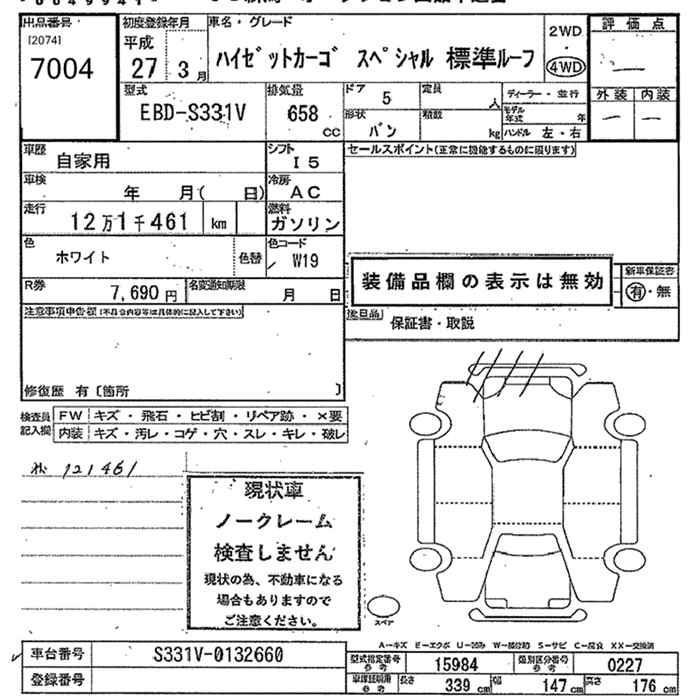 出品番号 初度登録年月 車名・グレード 2WD 評価点
[2074] 平成 ・
7004 27年3月 ハイゼットカーゴ スペシャル 標準ルーフ 4WD —
型式 排気量 ドア 5 定員 人 ディーラー・並行 外装 内装
EBD-S331V 658 cc 形状 バン 積数 kg モデル年式 年 — —
ハンドル 左・右
車歴 自家用 シフト I5 セールスポイント(正常に機能するものに限ります)
車検 年 月( 日) 冷房 AC
走行 12万1千461 km 燃料 ガソリン
色 ホワイト 色替 色コード W19
装備品欄の表示は無効 新車保証書
R券 7,690円 名変通知期限 月 日 有・無
注意事項申告欄(不具合内容等は具体的に記入して下さい) 後日品 保証書・取説
修復歴 有〔箇所 〕
検査員 FW キズ・飛石・ヒビ割・リペア跡・×要
記入欄 内装 キズ・汚レ・コゲ・穴・スレ・キレ・破レ
121461
現状車
ノークレーム
検査しません
現状の為、不動車になる
場合もありますので
ご注意ください。
スペア
A—キズ E—エクボ U—凹み W—補修跡 S—サビ C—腐食 XX—交換済
車台番号 S331V-0132660 型式指定番号 参考 15984 類別区分番号 参考 0227
登録番号 車庫証明用 参考 長さ 339 cm 幅 147 cm 高さ 176 cm